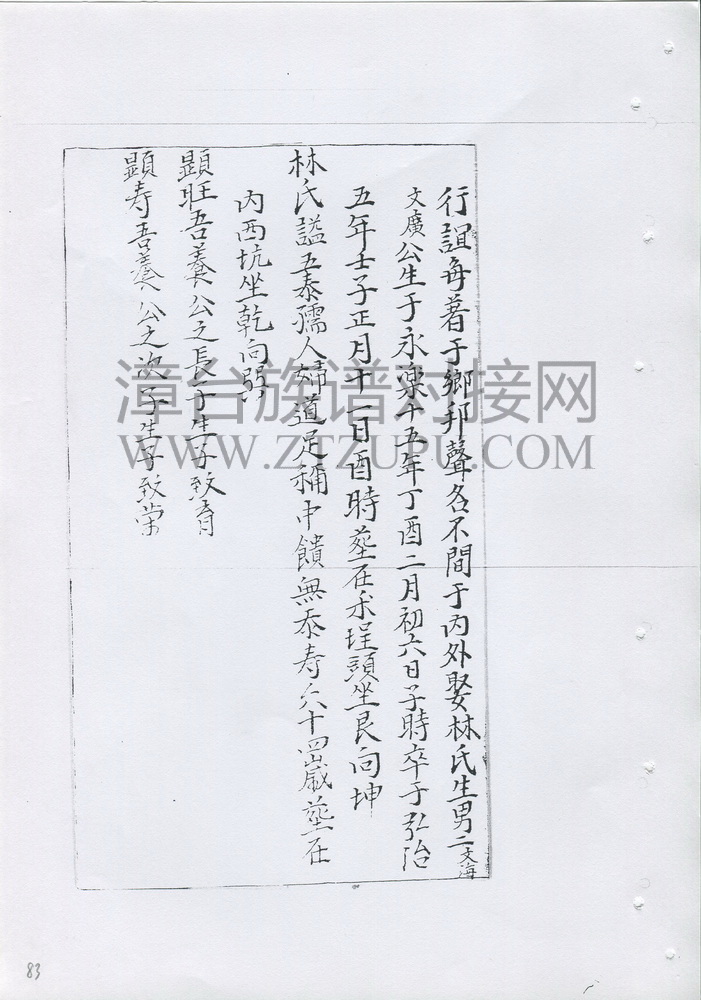 行誼每著于鄉邦聲名不間于內外娶林氏生男二文海
文廣公生于永樂十五年丁酉二月初六日子時卒于弘治
五年壬子正月十一日酉時塟在禾埕頭坐艮向坤
林氏謚五泰孺人婦道足稱中饋無忝寿六十四歲塟在
內西坑坐乾向巽
顕旺吾養公之長子生子致育
顕寿吾養公之次子生子致荣
漳台族谱对接网
WWW.ZTZUPU.COM
83